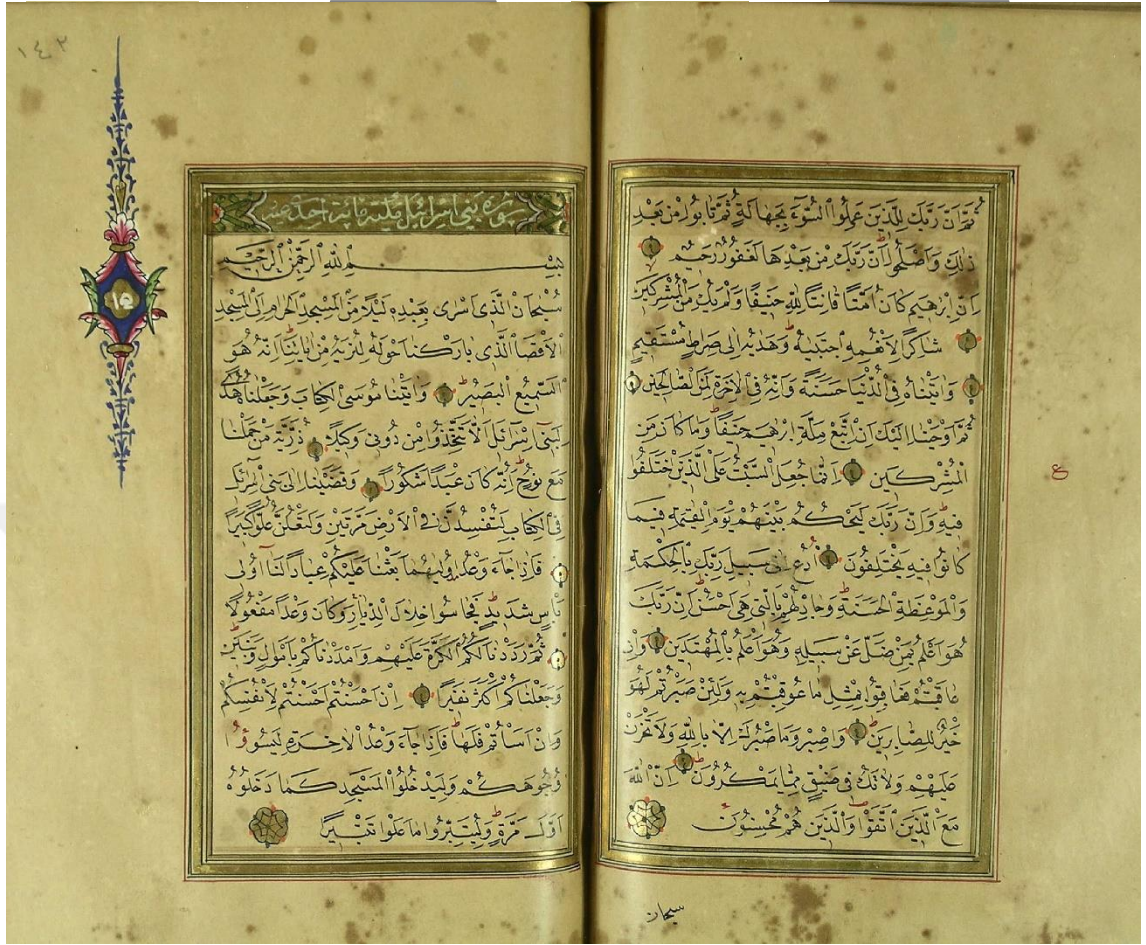 ثُمَّ اِنَّ رَبَّكَ لِلَّذِينَ عَمِلُوا السُّوٓءَ بِجَهَالَةٍ ثُمَّ تَابُوا مِنْ بَعْدِ
ذٰلِكَ وَاَصْلَحُٓوا اِنَّ رَبَّكَ مِنْ بَعْدِهَا لَغَفُورٌ رَحِيمٌ
اِنَّ اِبْرٰهِيمَ كَانَ اُمَّةً قَانِتًا لِلّٰهِ حَنِيفًا وَلَمْ يَكُ مِنَ الْمُشْرِكِينَ
شَاكِرًا لِاَنْعُمِهِ اجْتَبٰيهُ وَهَدٰيهُ اِلٰى صِرَاطٍ مُسْتَقِيمٍ
وَاٰتَيْنَاهُ فِي الدُّنْيَا حَسَنَةً وَاِنَّهُ فِي الْاٰخِرَةِ لَمِنَ الصَّالِحِينَ
ثُمَّ اَوْحَيْنَٓا اِلَيْكَ اَنِ اتَّبِعْ مِلَّةَ اِبْرٰهِيمَ حَنِيفًا وَمَا كَانَ مِنَ
الْمُشْرِكِينَ اِنَّمَا جُعِلَ السَّبْتُ عَلَى الَّذِينَ اخْتَلَفُوا
فِيهِ وَاِنَّ رَبَّكَ لَيَحْكُمُ بَيْنَهُمْ يَوْمَ الْقِيٰمَةِ فِيمَا
كَانُوا فِيهِ يَخْتَلِفُونَ اُدْعُ اِلٰى سَبِيلِ رَبِّكَ بِالْحِكْمَةِ
وَالْمَوْعِظَةِ الْحَسَنَةِ وَجَادِلْهُمْ بِالَّتِي هِيَ اَحْسَنُ اِنَّ رَبَّكَ
هُوَ اَعْلَمُ بِمَنْ ضَلَّ عَنْ سَبِيلِهِ وَهُوَ اَعْلَمُ بِالْمُهْتَدِينَ وَاِنْ
عَاقَبْتُمْ فَعَاقِبُوا بِمِثْلِ مَا عُوقِبْتُمْ بِهِ وَلَئِنْ صَبَرْتُمْ لَهُوَ
خَيْرٌ لِلصَّابِرِينَ وَاصْبِرْ وَمَا صَبْرُكَ اِلَّا بِاللّٰهِ وَلَا تَحْزَنْ
عَلَيْهِمْ وَلَا تَكُ فِي ضَيْقٍ مِمَّا يَمْكُرُونَ اِنَّ اللّٰهَ
مَعَ الَّذِينَ اتَّقَوْا وَالَّذِينَ هُمْ مُحْسِنُونَ
ع
سبحان
١٤٣
١٥
سورة بني اسرائيل مكية مائة واحدى عشر
بِسْمِ اللّٰهِ الرَّحْمٰنِ الرَّحِيمِ
سُبْحَانَ الَّذِي اَسْرٰى بِعَبْدِهِ لَيْلًا مِنَ الْمَسْجِدِ الْحَرَامِ اِلَى الْمَسْجِدِ
الْاَقْصَا الَّذِي بَارَكْنَا حَوْلَهُ لِنُرِيَهُ مِنْ اٰيَاتِنَا اِنَّهُ هُوَ
السَّمِيعُ الْبَصِيرُ وَاٰتَيْنَا مُوسَى الْكِتَابَ وَجَعَلْنَاهُ هُدًى
لِبَنِٓي اِسْرَٓائِلَ اَلَّا تَتَّخِذُوا مِنْ دُونِي وَكِيلًا ذُرِّيَّةَ مَنْ حَمَلْنَا
مَعَ نُوحٍ اِنَّهُ كَانَ عَبْدًا شَكُورًا وَقَضَيْنَٓا اِلٰى بَنِٓي اِسْرَٓائِلَ
فِي الْكِتَابِ لَتُفْسِدُنَّ فِي الْاَرْضِ مَرَّتَيْنِ وَلَتَعْلُنَّ عُلُوًّا كَبِيرًا
فَاِذَا جَٓاءَ وَعْدُ اُولٰيهُمَا بَعَثْنَا عَلَيْكُمْ عِبَادًا لَنَٓا اُولِي
بَأْسٍ شَدِيدٍ فَجَاسُوا خِلَالَ الدِّيَارِ وَكَانَ وَعْدًا مَفْعُولًا
ثُمَّ رَدَدْنَا لَكُمُ الْكَرَّةَ عَلَيْهِمْ وَاَمْدَدْنَاكُمْ بِاَمْوَالٍ وَبَنِينَ
وَجَعَلْنَاكُمْ اَكْثَرَ نَفِيرًا اِنْ اَحْسَنْتُمْ اَحْسَنْتُمْ لِاَنْفُسِكُمْ
وَاِنْ اَسَأْتُمْ فَلَهَا فَاِذَا جَٓاءَ وَعْدُ الْاٰخِرَةِ لِيَسُٓوؤُا
وُجُوهَكُمْ وَلِيَدْخُلُوا الْمَسْجِدَ كَمَا دَخَلُوهُ
اَوَّلَ مَرَّةٍ وَلِيُتَبِّرُوا مَا عَلَوْا تَتْبِيرًا